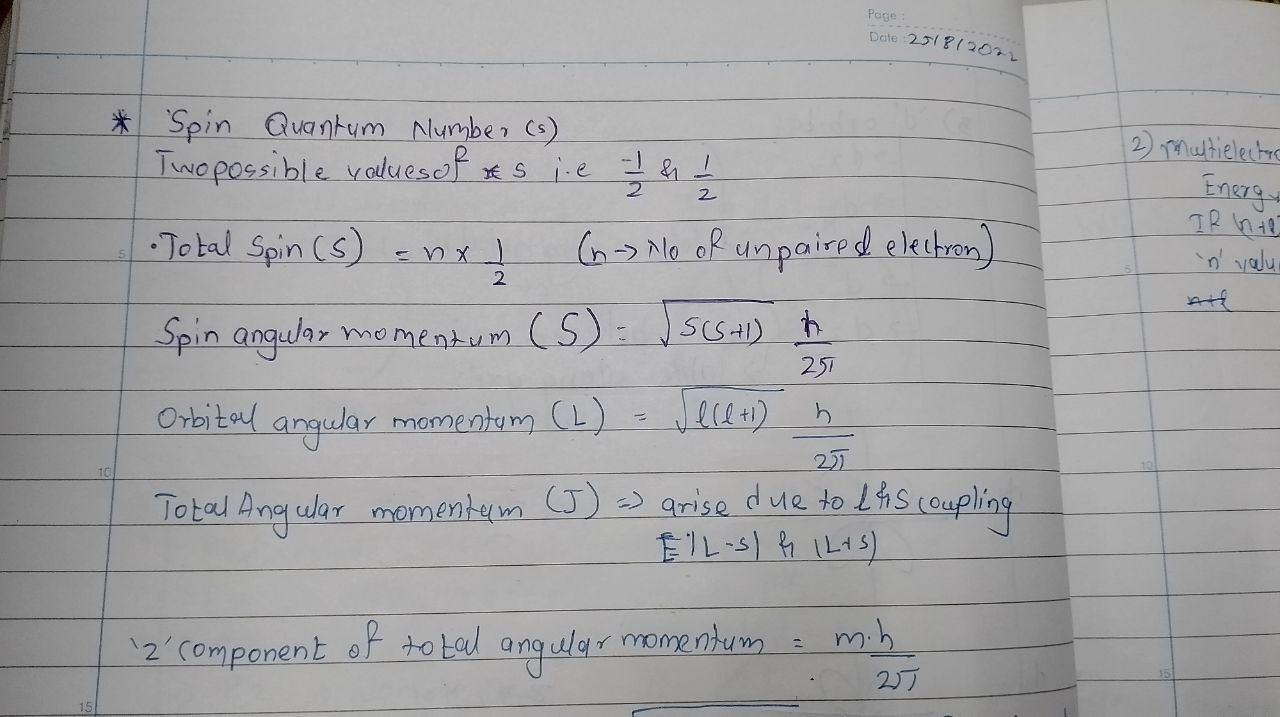 Page :
Date : 25/8/2022
* Spin Quantum Number (s)
Two possible values of s i.e -1/2 & 1/2
• Total Spin (S) = n x 1/2 (n → No of unpaired electron)
Spin angular momentum (S) = √s(s+1) h/2π
Orbital angular momentum (L) = √l(l+1) h/2π
Total Angular momentum (J) => arise due to L & S coupling
|L-S| & |L+S)
'z' component of total angular momentum = m.h/2π
5
10
15
2) multielectro
Energy
If (n+l
'n' valu
n+l
5
10
15